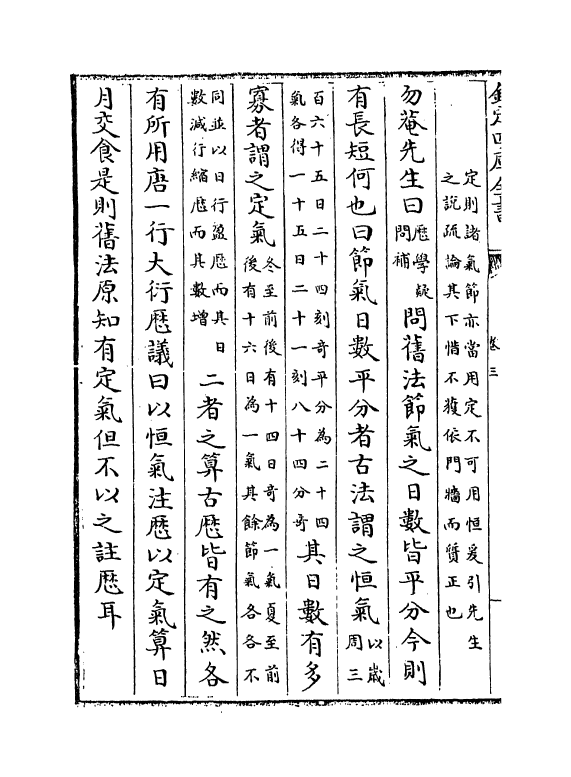 欽定四庫全書
卷三
定則諸氣節亦當用定不可用恒爰引先生
之說疏論其下惜不獲依門牆而質正也
勿菴先生曰厯學疑問補問舊法節氣之日數皆平分今則
有長短何也曰節氣日數平分者古法謂之恒氣以歲周三
百六十五日二十四刻奇平分為二十四氣各得一十五日二十一刻八十四分奇其日數有多
寡者謂之定氣冬至前後有十四日奇為一氣夏至前後有十六日為一氣其餘節氣各各不
同並以日行盈厯而其日數減行縮厯而其數增二者之算古厯皆有之然各
有所用唐一行大衍厯議曰以恒氣注厯以定氣算日
月交食是則舊法原知有定氣但不以之註厯耳